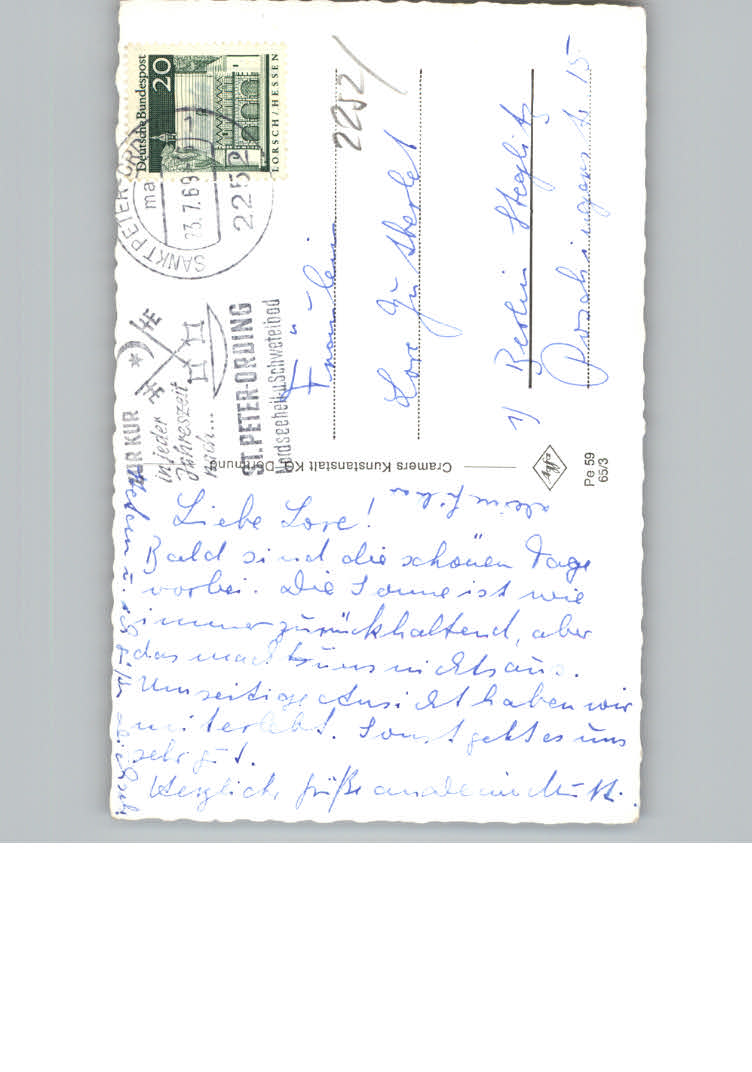 Liebe Lore!
Bald sind die schönen Tage
vorbei. Die Sonne ist wie
immer zurückhaltend, aber
das macht uns nichts aus.
Umseitige Ansicht haben wir
miterlebt. Sonst geht es uns
sehr gut.
Herzliche Grüße an deine
Cramers Kunstanstalt KG, Dortmund
Agfa
Pe 59
65/3
Deutsche Bundespost
20
LORSCH/HESSEN
SANKT PETER-ORDING
23.7.69
2252
ZUR KUR
in jeder
Jahreszeit
nach...
ST. PETER-ORDING
Nordseeheil-u.Schwefelbad
2252
Fräulein
Lore
1/ Berlin Steglitz
15